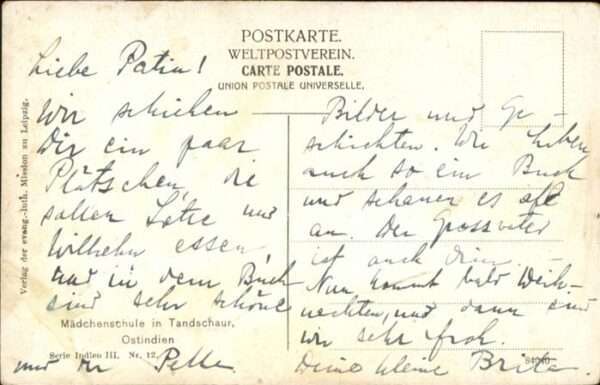 POSTKARTE.
WELTPOSTVEREIN.
CARTE POSTALE.
UNION POSTALE UNIVERSELLE.
Liebe Patin!
Wir schicken
Dir ein paar
Plätschen, die
sollen Lotte und
Wilhelm essen,
und in dem Buch
sind sehr schöne
Bilder und Ge-
schichten. Wir haben
auch so ein Buch
und schauen es oft
an. Der Grossvater
ist auch drin.
Nun kommt bald Weih-
nachten, und dann sind
wir sehr froh.
Deine kleine
und der
Mädchenschule in Tandschaur,
Ostindien
Serie Indien III. Nr. 12.
Verlag der evang.-luth. Mission zu Leipzig.